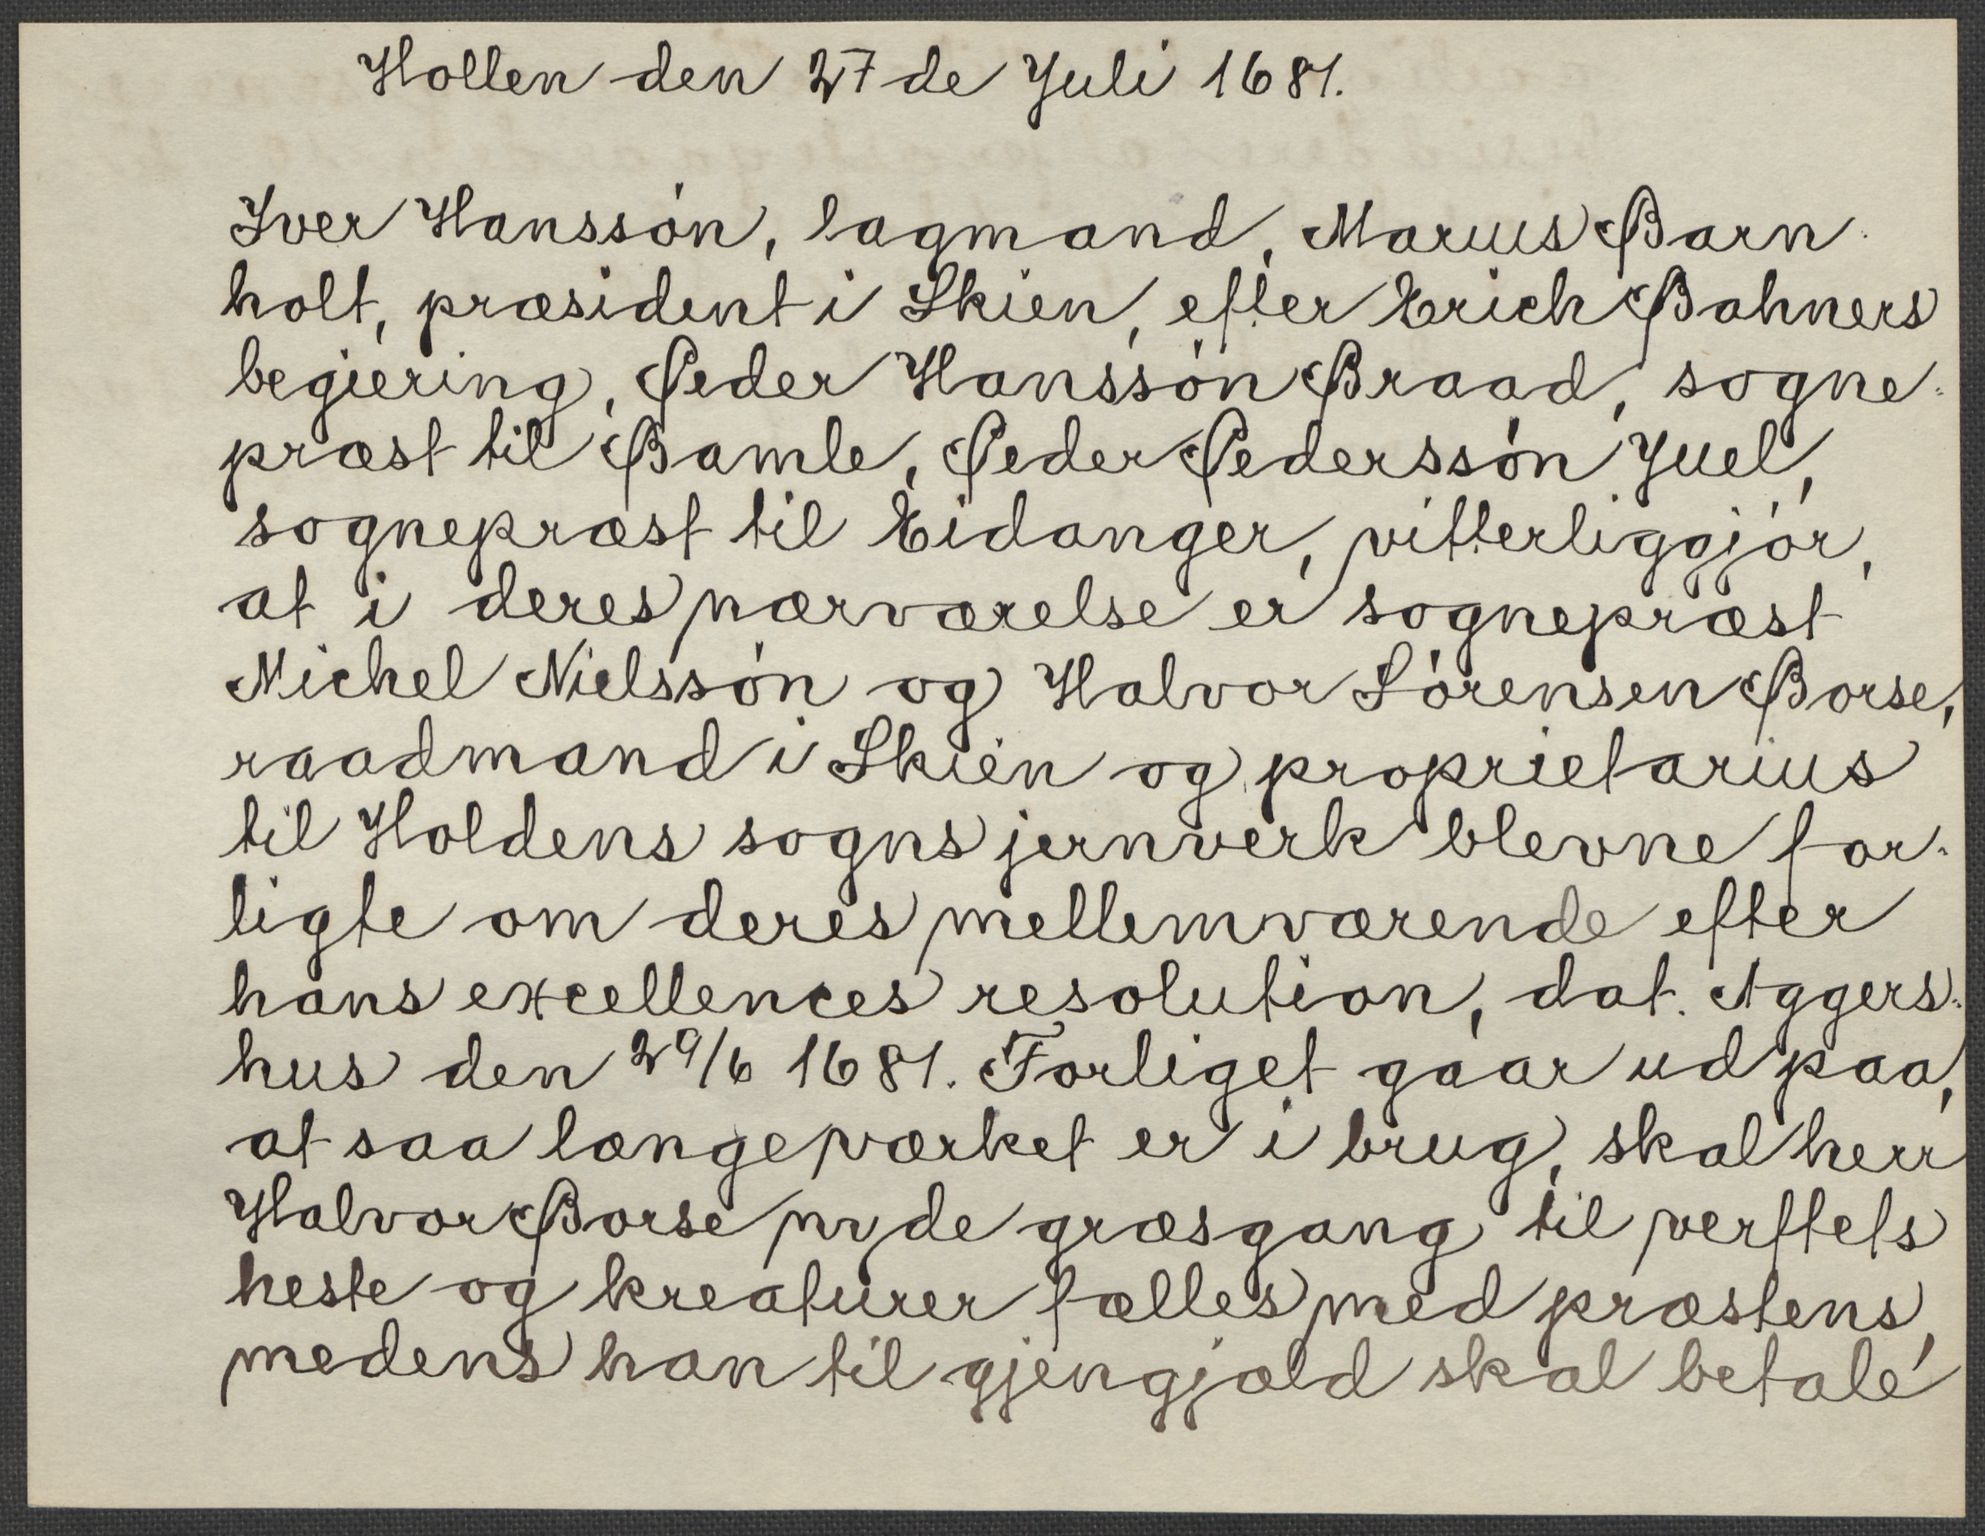 Hollen den 27de Juli 1681.
Iver Hanssón, lagmand, Marius Barn-
holt, præsident i Skien, efter Erich Bahners
begiering, Peder Hanssón Braad, sogne-
præst til Bamle, Peder Pederssón Juel,
sognepræst til Eidanger, vitterliggjór,
at i deres nærværelse er sognepræst
Michel Nielssón og Halvor Sórensen Borse,
raadmand i Skien og proprietarius
til Holdens sogns jernverk blevne for-
ligte om deres mellemværende efter
hans excellences resolution, dat. Aggers-
hus den 29/6 1681. Forliget gaar ud paa,
at saa længe værket er i brug, skal herr
Halvor Borse nyde græsgang til verftets
heste og kreaturer fælles med præstens,
medens han til gjengjæld skal betale